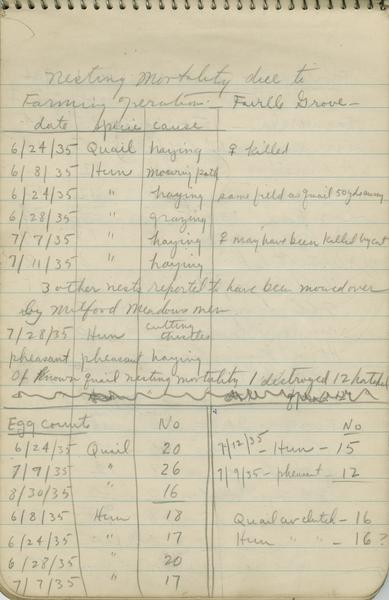 Nesting Mortality due to
Farming Operation - Faville Grove -
date Specie cause
6/24/35 Quail haying ♀ killed
6/8/35 Hun mowing path
6/24/35 " haying same field as quail 50 yds away
6/28/35 " grazing
7/7/35 " haying ♀ may have been killed by cat
7/11/35 " haying
3 other nests reported to have been mowed over
by Milford Meadows men
7/28/35 Hun cutting thistles
pheasant pheasant haying
Of known quail nesting mortality 1 destroyed 12 hatched
Egg count No
6/24/35 Quail 20
7/9/35 " 26
8/30/35 16
6/8/35 Hun 18
6/24/35 " 17
6/28/35 " 20
7/7/35 " 17
No
7/12/35 - Hun - 15
7/9/35 - pheasant - 12
Quail av clutch - 16
Hun " " - 16 ?